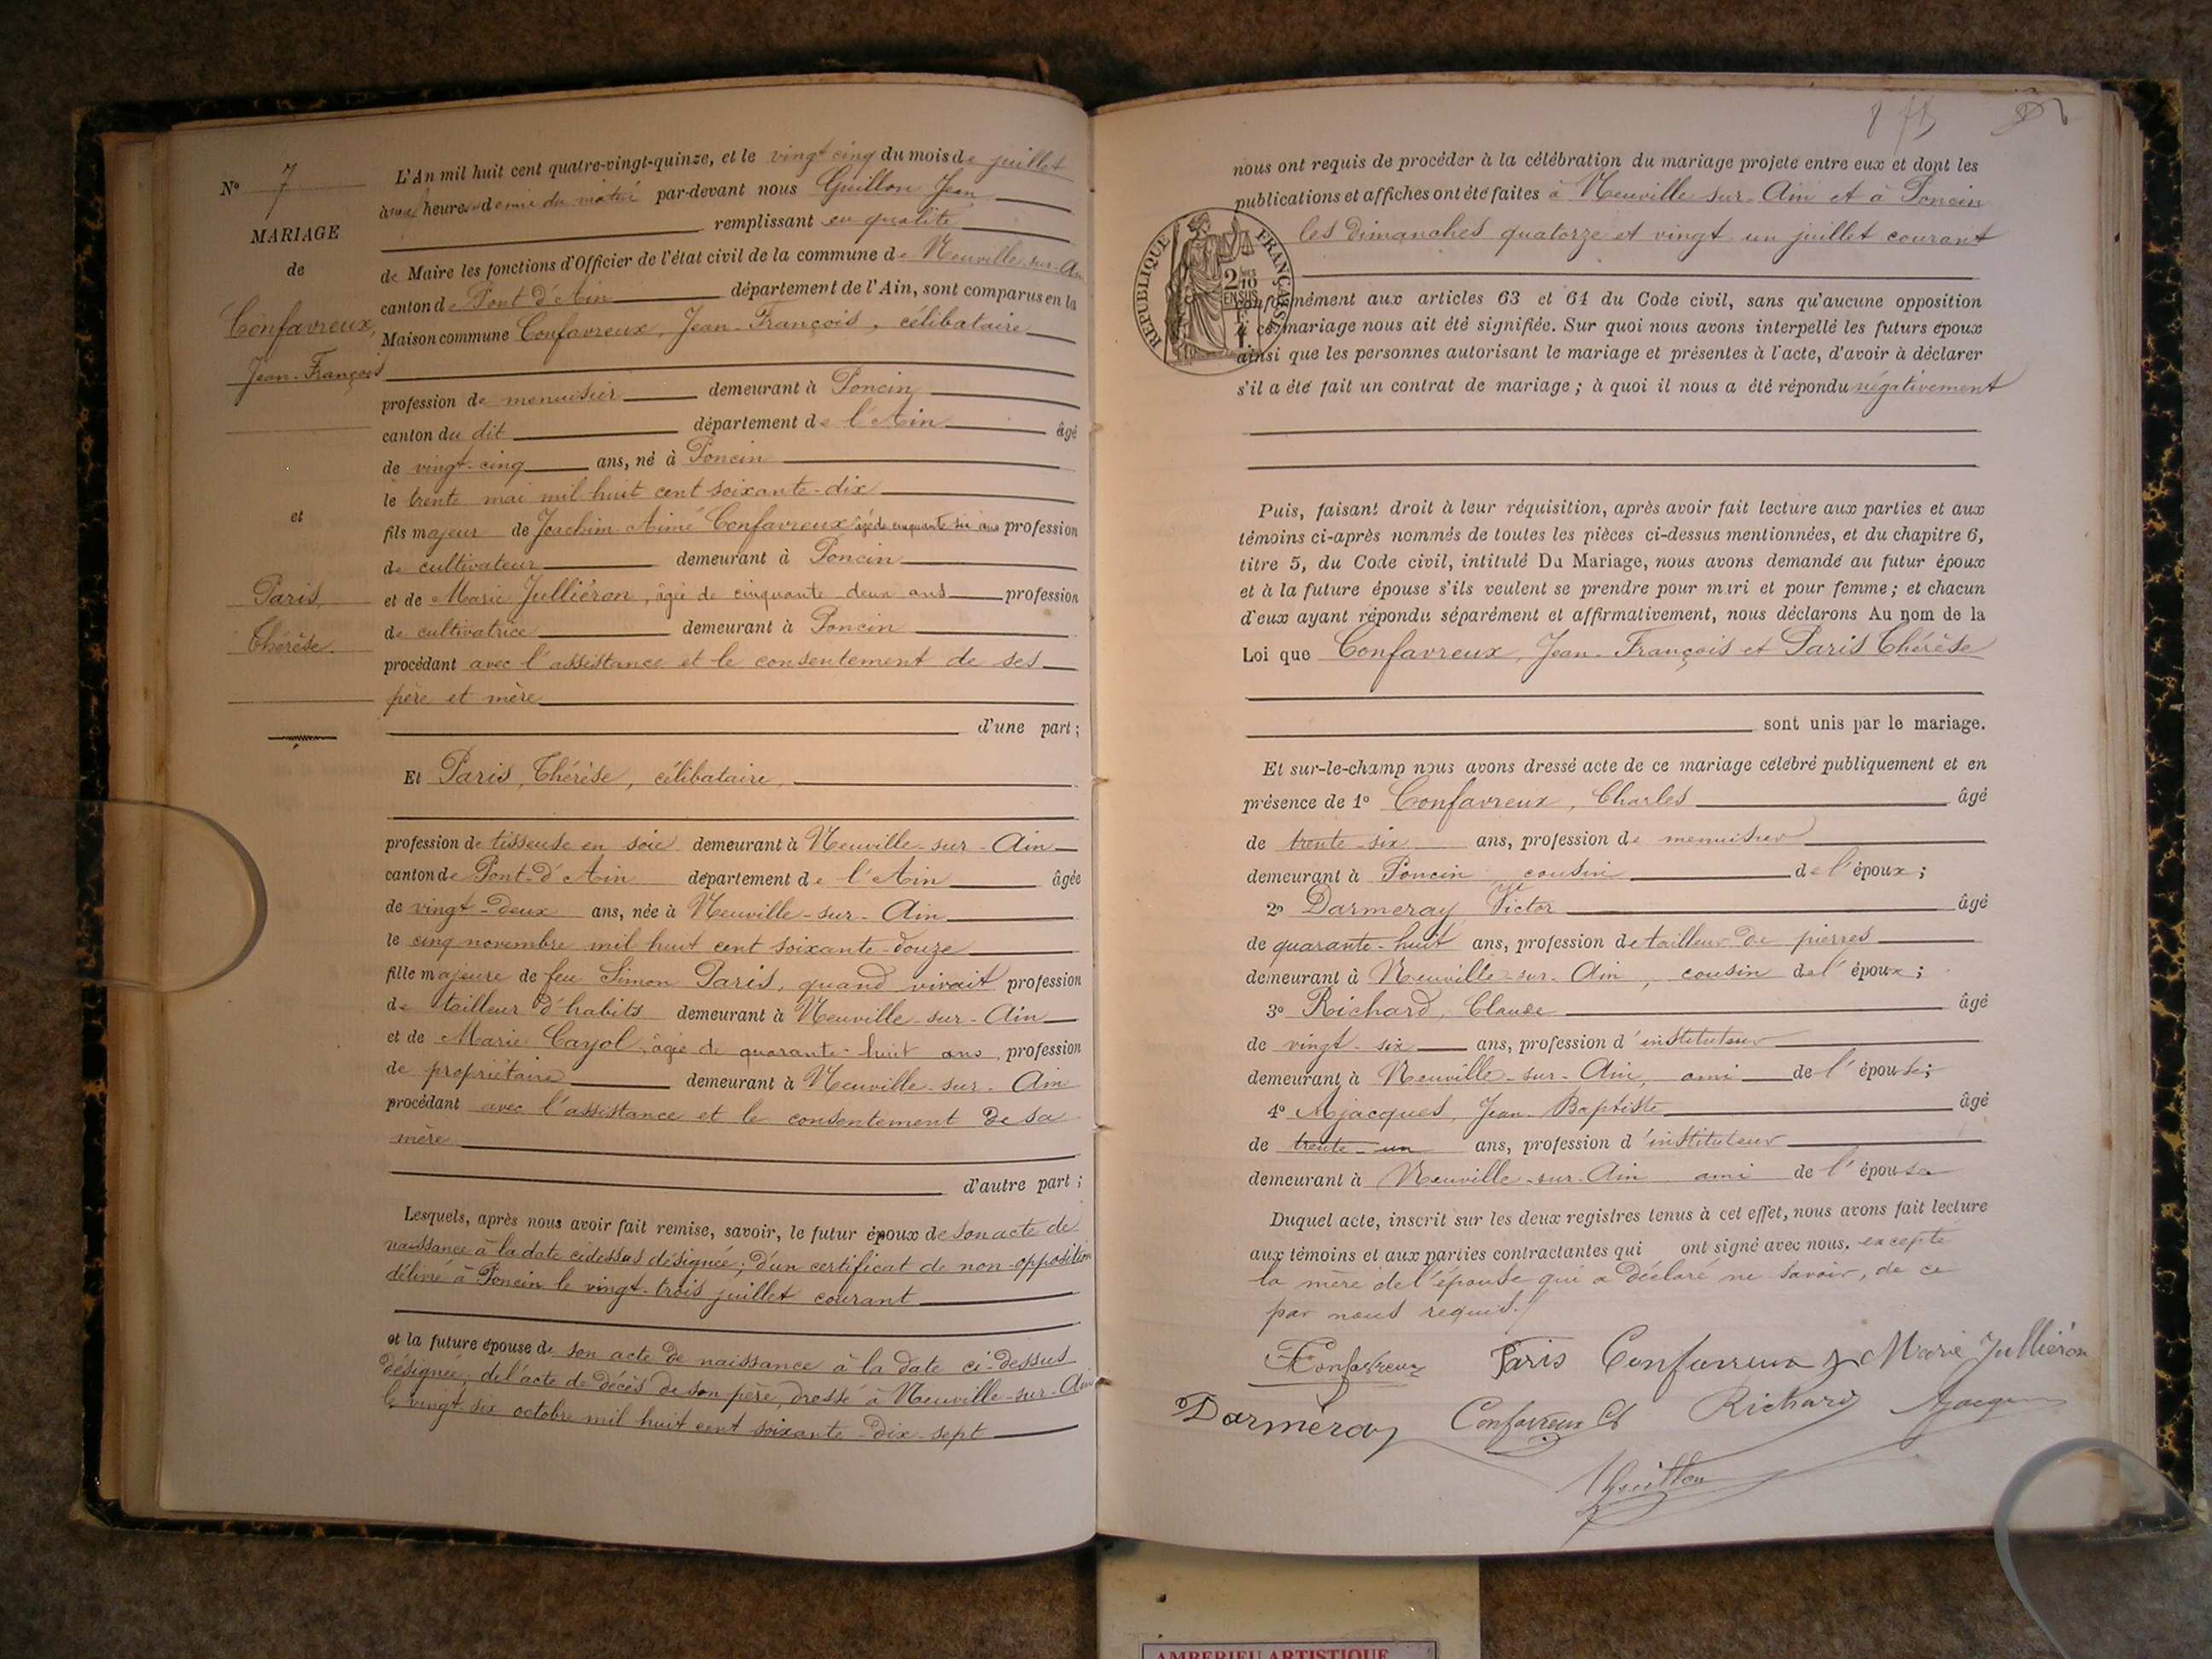 N° 7
MARIAGE
de
Confavreux,
Jean-François
et
Paris,
Thérèse.
L'An mil huit cent quatre-vingt-quinze, et le vingt cinq du mois de juillet
à heure demie du matin par-devant nous Guillon Jean
remplissant en qualité
de Maire les fonctions d'Officier de l'état civil de la commune de Neuville-sur-Ain
canton de Pont d'Ain département de l'Ain, sont comparus en la
Maison commune Confavreux, Jean-François, célibataire
profession de menuisier demeurant à Poncin
canton du dit département de l'Ain âgé
de vingt-cinq ans, né à Poncin
le trente mai mil huit cent soixante-dix
fils majeur de Joachim Aimé Confavreux âgé de cinquante six ans profession
de cultivateur demeurant à Poncin
et de Marie Julliéron, âgée de cinquante deux ans profession
de cultivatrice demeurant à Poncin
procédant avec l'assistance et le consentement de ses
père et mère
d'une part ;
Et Paris, Thérèse, célibataire,
profession de tisseuse en soie demeurant à Neuville-sur-Ain
canton de Pont-d'Ain département de l'Ain âgée
de vingt-deux ans, née à Neuville-sur-Ain
le cinq novembre mil huit cent soixante-douze
fille majeure de feu Simon Paris, quand vivait profession
de tailleur d'habits demeurant à Neuville-sur-Ain
et de Marie Cayol, âgée de quarante-huit ans, profession
de propriétaire demeurant à Neuville-sur-Ain
procédant avec l'assistance et le consentement de sa
mère
d'autre part ;
Lesquels, après nous avoir fait remise, savoir, le futur époux de son acte de
naissance à la date ci dessus désignée ; d'un certificat de non-opposition
délivré à Poncin le vingt-trois juillet courant
et la future épouse de son acte de naissance à la date ci-dessus
désignée, de l'acte de décès de son père, dressé à Neuville-sur-Ain
le vingt six octobre mil huit cent soixante-dix-sept
nous ont requis de procéder à la célébration du mariage projeté entre eux et dont les
publications et affiches ont été faites à Neuville-sur-Ain et à Poncin
les dimanches quatorze et vingt un juillet courant
RÉPUBLIQUE FRANÇAISE
2/10
EN SUS
conformément aux articles 63 et 64 du Code civil, sans qu'aucune opposition
à ce mariage nous ait été signifiée. Sur quoi nous avons interpellé les futurs époux
ainsi que les personnes autorisant le mariage et présentes à l'acte, d'avoir à déclarer
s'il a été fait un contrat de mariage ; à quoi il nous a été répondu négativement
Puis, faisant droit à leur réquisition, après avoir fait lecture aux parties et aux
témoins ci-après nommés de toutes les pièces ci-dessus mentionnées, et du chapitre 6,
titre 5, du Code civil, intitulé Du Mariage, nous avons demandé au futur époux
et à la future épouse s'ils veulent se prendre pour mari et pour femme ; et chacun
d'eux ayant répondu séparément et affirmativement, nous déclarons Au nom de la
Loi que Confavreux, Jean-François et Paris Thérèse
sont unis par le mariage.
Et sur-le-champ nous avons dressé acte de ce mariage célébré publiquement et en
présence de 1° Confavreux, Charles âgé
de trente-six ans, profession de menuisier
demeurant à Poncin cousin de l'époux ;
2° Darmeray Victor âgé
de quarante-huit ans, profession de tailleur de pierres
demeurant à Neuville-sur-Ain, cousin de l'époux ;
3° Richard, Claude âgé
de vingt-six ans, profession d'instituteur
demeurant à Neuville-sur-Ain, ami de l'épouse ;
4° Ajacques, Jean-Baptiste âgé
de trente-un ans, profession d'instituteur
demeurant à Neuville-sur-Ain ami de l'épouse
Duquel acte, inscrit sur les deux registres tenus à cet effet, nous avons fait lecture
aux témoins et aux parties contractantes qui ont signé avec nous. excepté
la mère de l'épouse qui a déclaré ne savoir, de ce
par nous requis.
Confavreux Paris Confavreux Marie Julliéron
Darméray Confavreux Ch Richard Ajacques
Guillon
AMBERIEU ARTISTIQUE